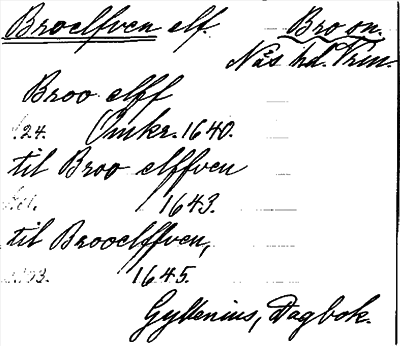 Broelfven elf. Bro sn.
Näs hd. Vrm.
Broo elff
s.24. Omkr. 1640.
til Broo elffven
1643.
til Brooelffven,
1645.
Gyllenius, Dagbok.